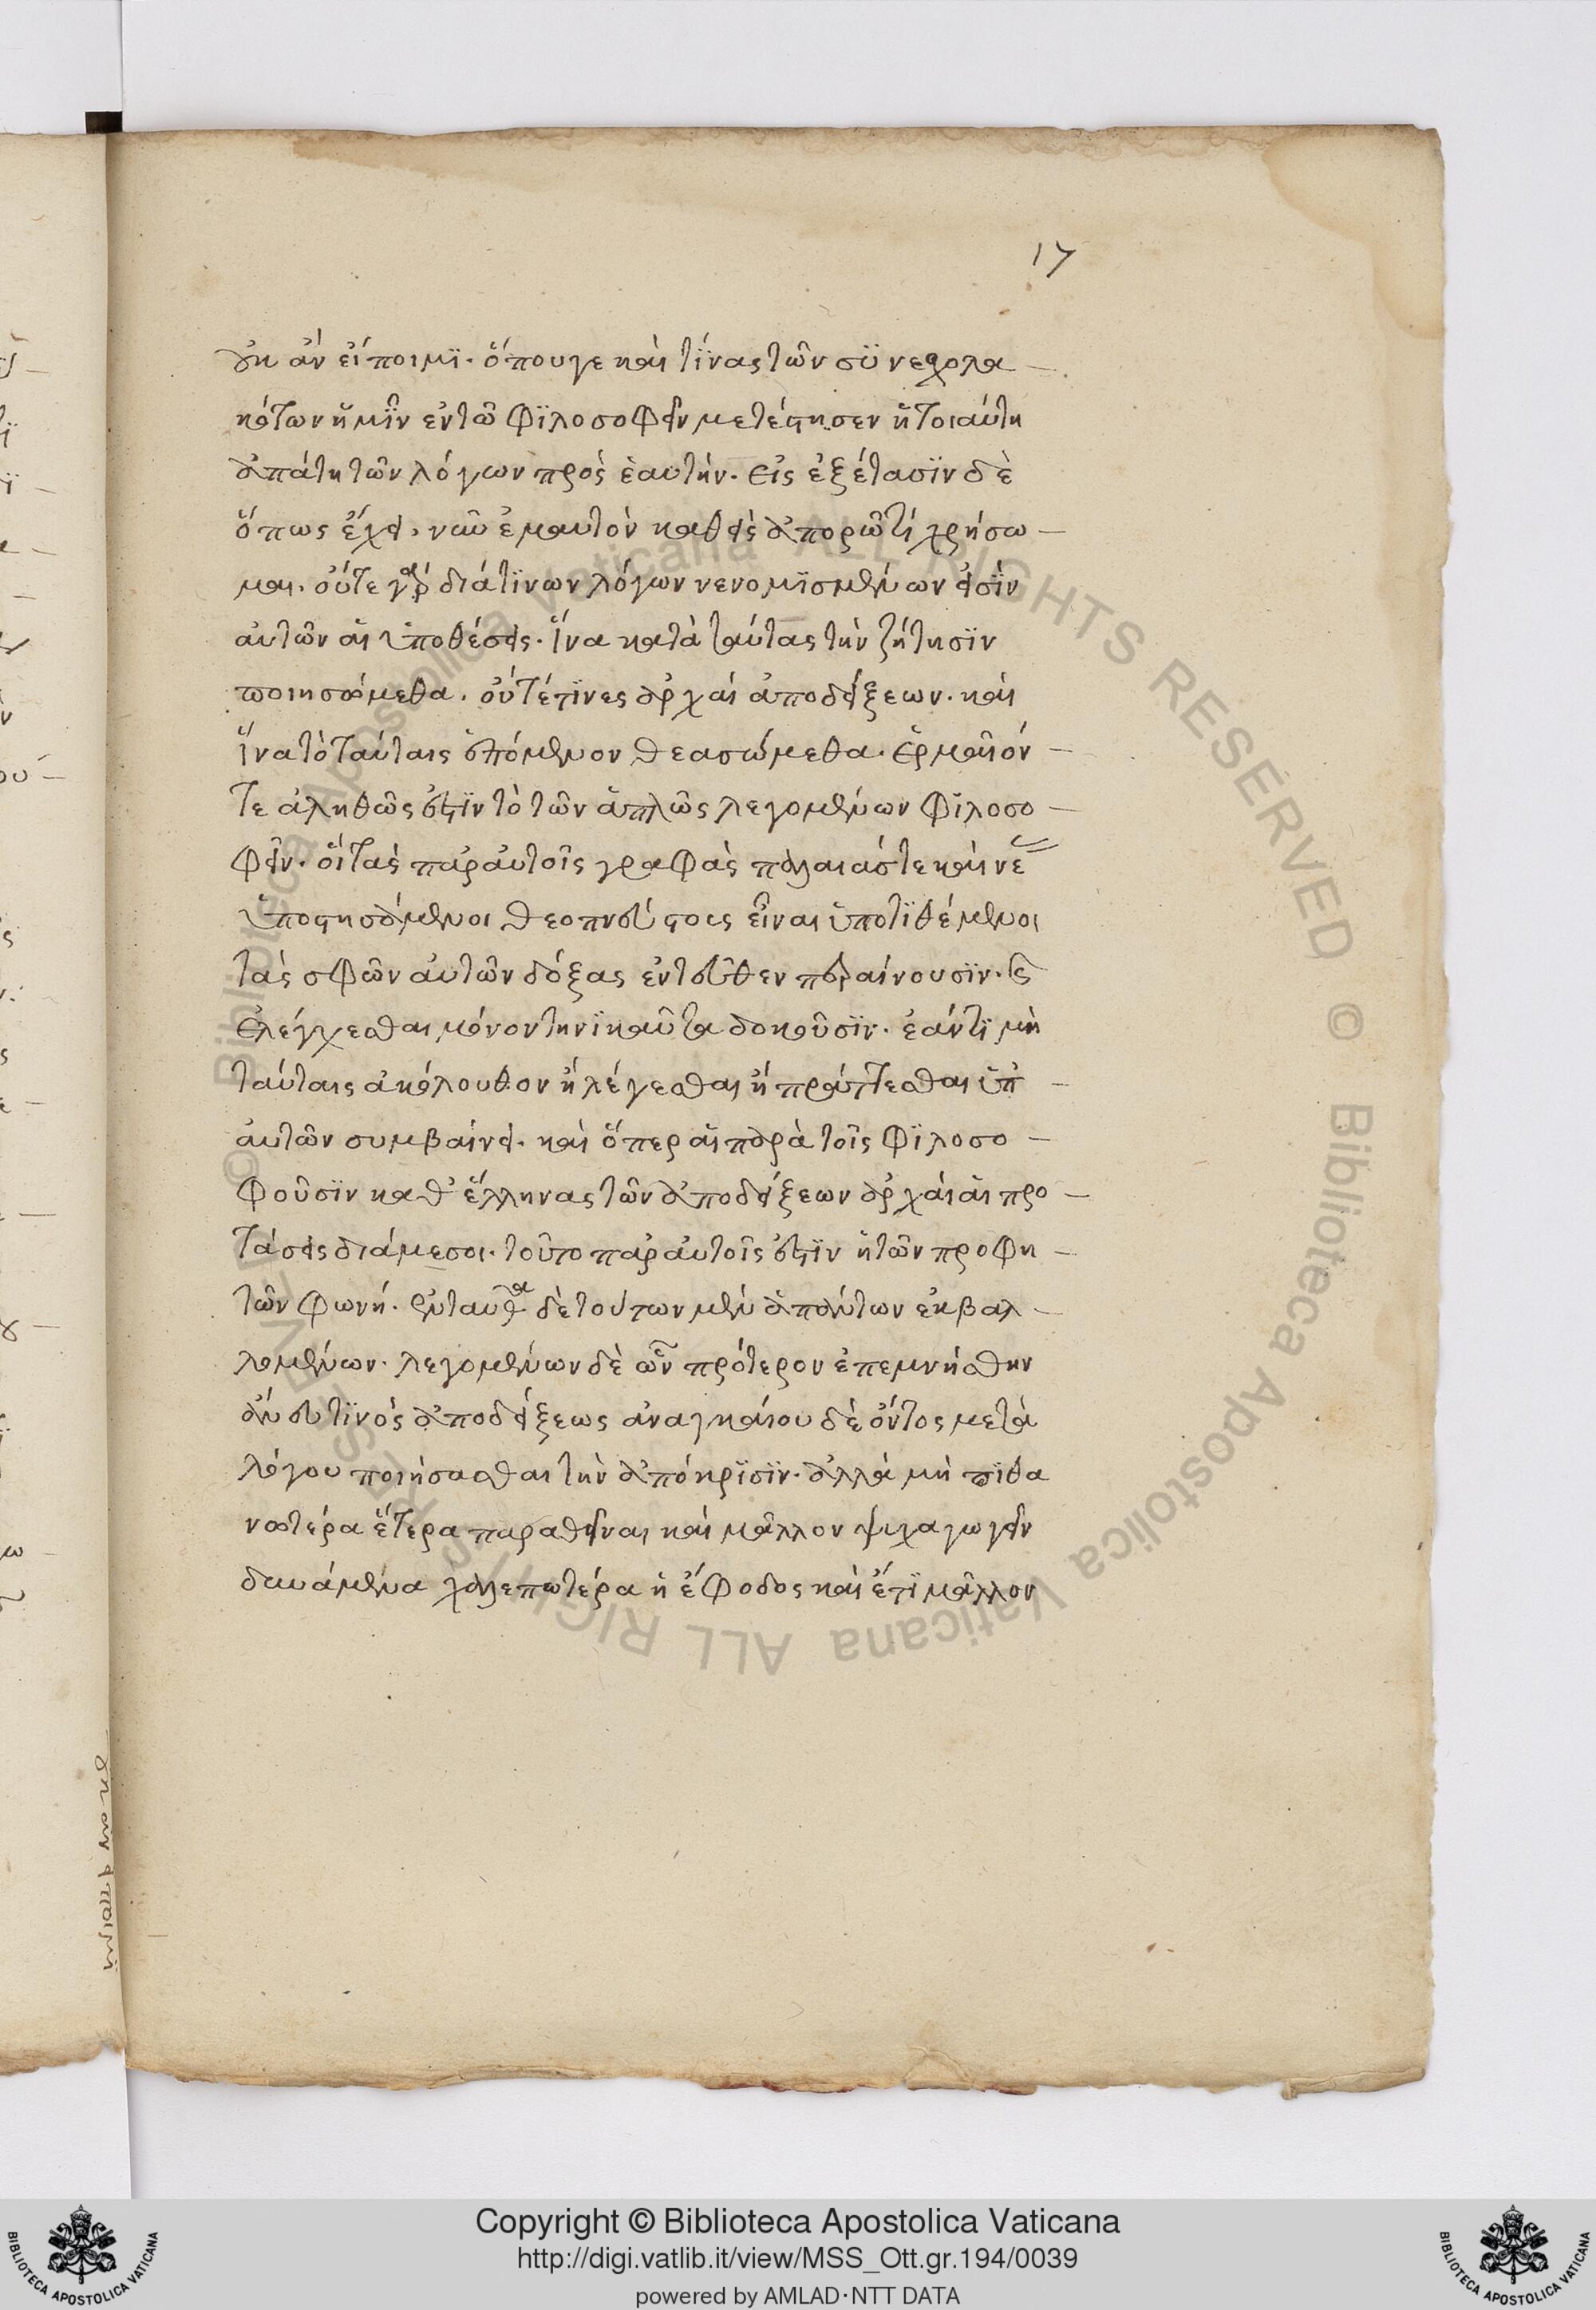 17
οὐκ ἂν εἴποιμϊ· ὅπουγε καὶ τίνας τῶν σϋνεσχολα
κότων ἡμῖν ἐν τῶ φϊλοσοφεῖν μετέστησεν ἡ τοιαύτη
ἀπάτη τῶν λόγων πρὸς ἑαυτήν. εἰς ἐξέτασϊν δὲ
ὅπως ἔχει· ἐμαυτὸν καθεὶς ἀπορῶ τί χρήσω
μαι. οὔτε γὰρ διὰ τϊνων λόγων νενομϊσμένων εἰσϊν
αὐτῶν αἱ ὑποθέσεις. ἵνα κατὰ ταύτας τὴν ζήτησϊν
ποιησόμεθα. οὔτέ τϊνες ἀρχαὶ ἀποδείξεων. καὶ
ἵνα τὸ ταύταις ἑπόμενον θεασώμεθα. ἑρμαῖόν
τε ἀληθῶς ἐστϊν τὸ τῶν ἁπλῶς λεγομένων φϊλοσο
φεῖν. οἱ τὰς παρ αὐτοῖς γραφὰς παλαιάς τε καὶ νέ
ὑποστησάμενοι θεοπνεύστοις εἶναι ὑποτϊθέμενοι
τὰς σφῶν αὐτῶν δόξας ἐντεῦθεν περαίνουσϊν. καὶ
ἐλέγχεσθαι μόνον τηνϊκαῦτα δοκοῦσϊν. ἐάν τϊ μὴ
ταύταις ἀκόλουθον ἢ λέγεσθαι ἢ πράττεσθαι ὑπ
αὐτῶν συμβαίνει. καὶ ὅπερ αἱ παρὰ τοῖς φϊλοσο
φοῦσϊν καθ ἕλληνας τῶν ἀποδείξεων ἀρχαὶ αἱ προ
τάσεις διάμεσοι. τοῦτο παρ αὐτοῖς ἐστϊν ἡ τῶν προφη
τῶν φωνή. ἐνταῦθα δὲ τούτων μὲν ἁπάντων ἐκβαλ
λομένων. λεγομένων δὲ ὧν πρότερον ἐπεμνήσθην
ἄνευ τϊνὸς ἀποδείξεως ἀναγκαίου δὲ ὄντος μετὰ
λόγου ποιήσασθαι τὴν ἀπόκρϊσϊν. ἀλλὰ μὴ πϊθα
νοτέρα ἕτερα παραθεῖναι καὶ μᾶλλον ψυχαγωγεῖν
δυνάμενα χαλεπωτέρα ἡ ἔφοδος καὶ ἔτϊ μᾶλλον
Copyright © Biblioteca Apostolica Vaticana
http://digi.vatlib.it/view/MSS_Ott.gr.194/0039
powered by AMLAD·NTT DATA